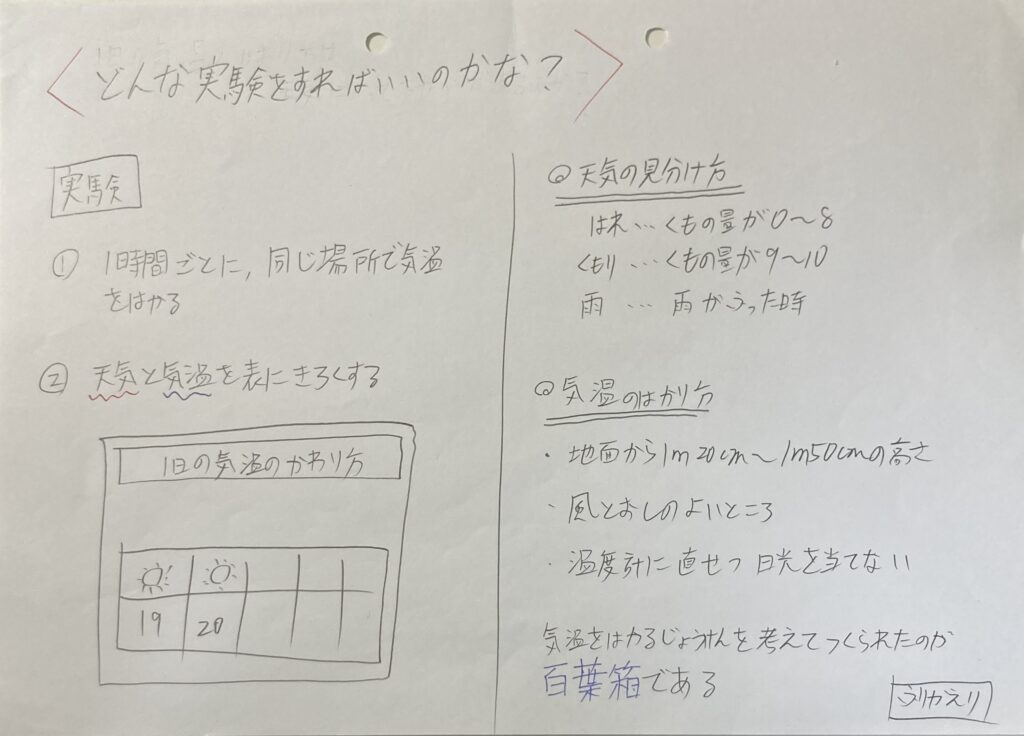 どんな実験をすればいいのかな？
実験
① 1時間ごとに，同じ場所で気温
をはかる
② 天気と気温を表にきろくする
1日の気温のかわり方
19 20
◎天気の見分け方
はれ…くもの量が0～8
くもり…くもの量が9～10
雨 … 雨がふった時
◎気温のはかり方
・地面から1m20cm～1m50cmの高さ
・風とおしのよいところ
・温度計に直せつ日光を当てない
気温をはかるじょうけんを考えてつくられたのが
百葉箱である
ふりかえり